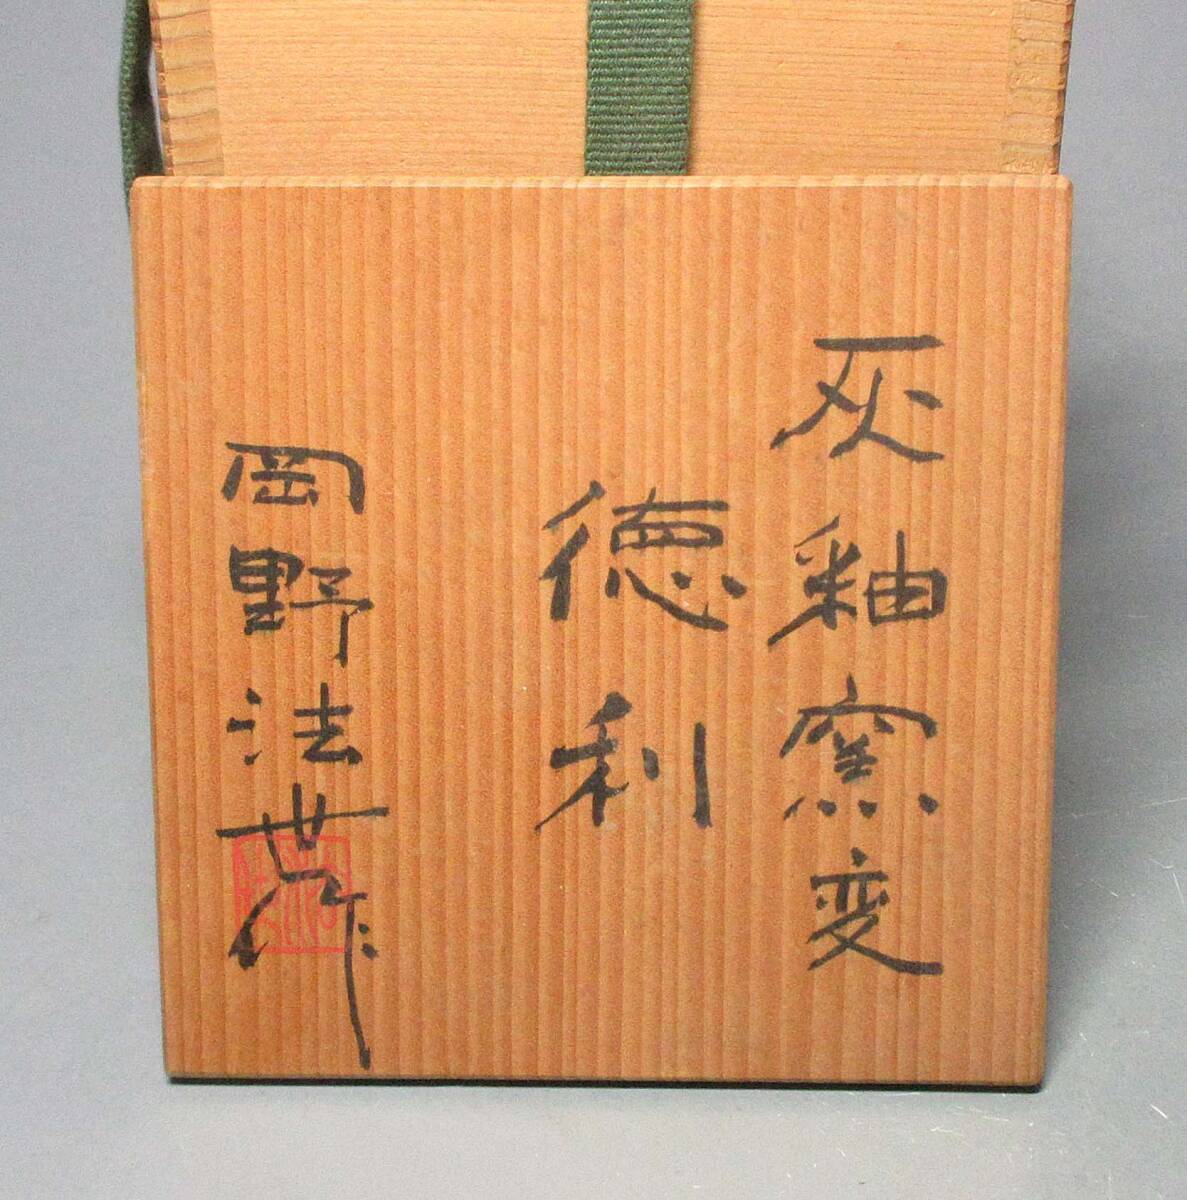 灰釉窯変
徳利
岡野法世作